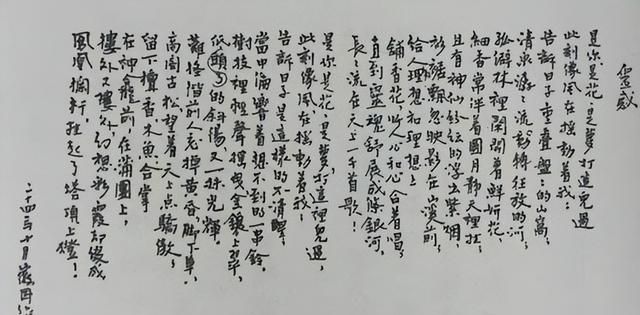 靈感
是你,是花,是夢,打這兒過
此刻像風在搖動着我:
告訴日子重疊盤盤的山窩;
清泉潺潺流動轉狂放的河;
孤僻林裡閑開着鮮妍花,
細香常伴着圓月靜天裡挂;
且有神仙紛紜的浮出紫烟,
衫裾飄忽映影在山溪前,
給人理想和理想上
鋪香花,叫人心和心合着唱,
直到靈魂舒展成條銀河,
長長流在天上一千首歌!
是你,是花,是夢,打這裡兒過,
此刻像風在搖動着我,
告訴日子是這樣的不清醒,
當中偏響着想不到的一串鈴,
樹枝裡輕聲搖曳,金鑲上翠,
低頭了的斜陽,又一抹光輝,
難怪階前人忘掉黃昏,脚下草,
高閣古松望着天上点驕傲,
留下檀香木魚,合掌
在神龕前,在蒲團上,
樓外又樓外,幻想彩霞却綴成
鳳凰欄杆,挂起了塔頂上燈!
二十四年十月徽因作